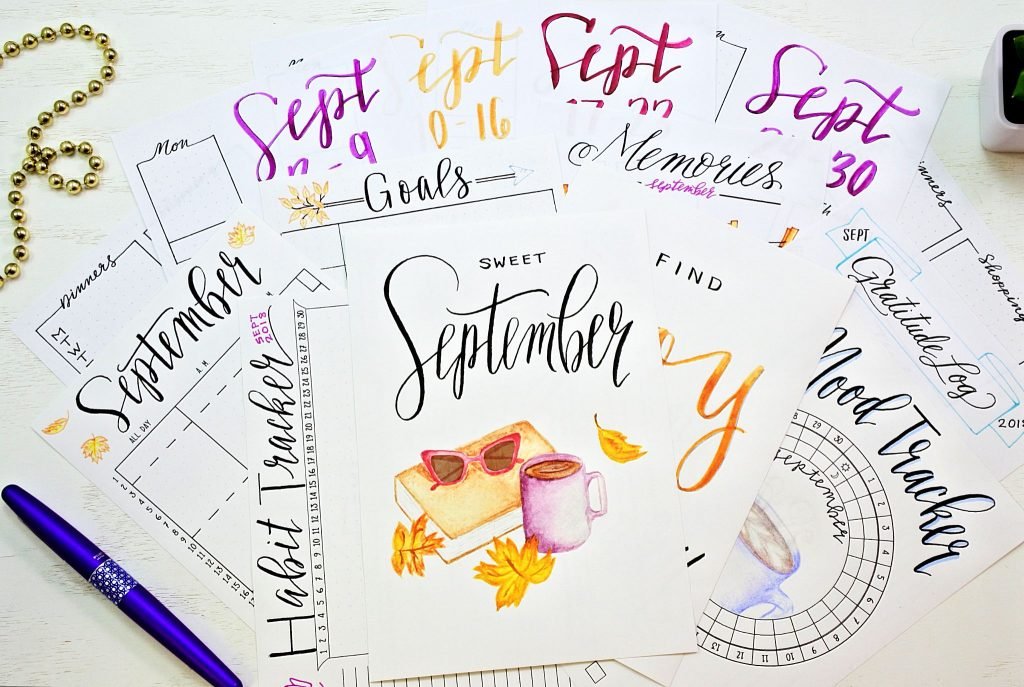 Sept
Sept
Sept
Sept
10-16
30
Mon
Goals
Memories
september
Dinners
M T W T
September
ALL DAY
A.M
1 2 3 4 5 6 7 8
SEPT
2018
Habit Tracker
1 2 3 4 5 6 7 8 9 10 11 12 13 14 15 16 17 18 19 20 21 22 23 24 25 26 27 28 29 30
SWEET
September
FIND
y
SEPT
Gratitude Log
2018
Shopping
Mood Tracker
September